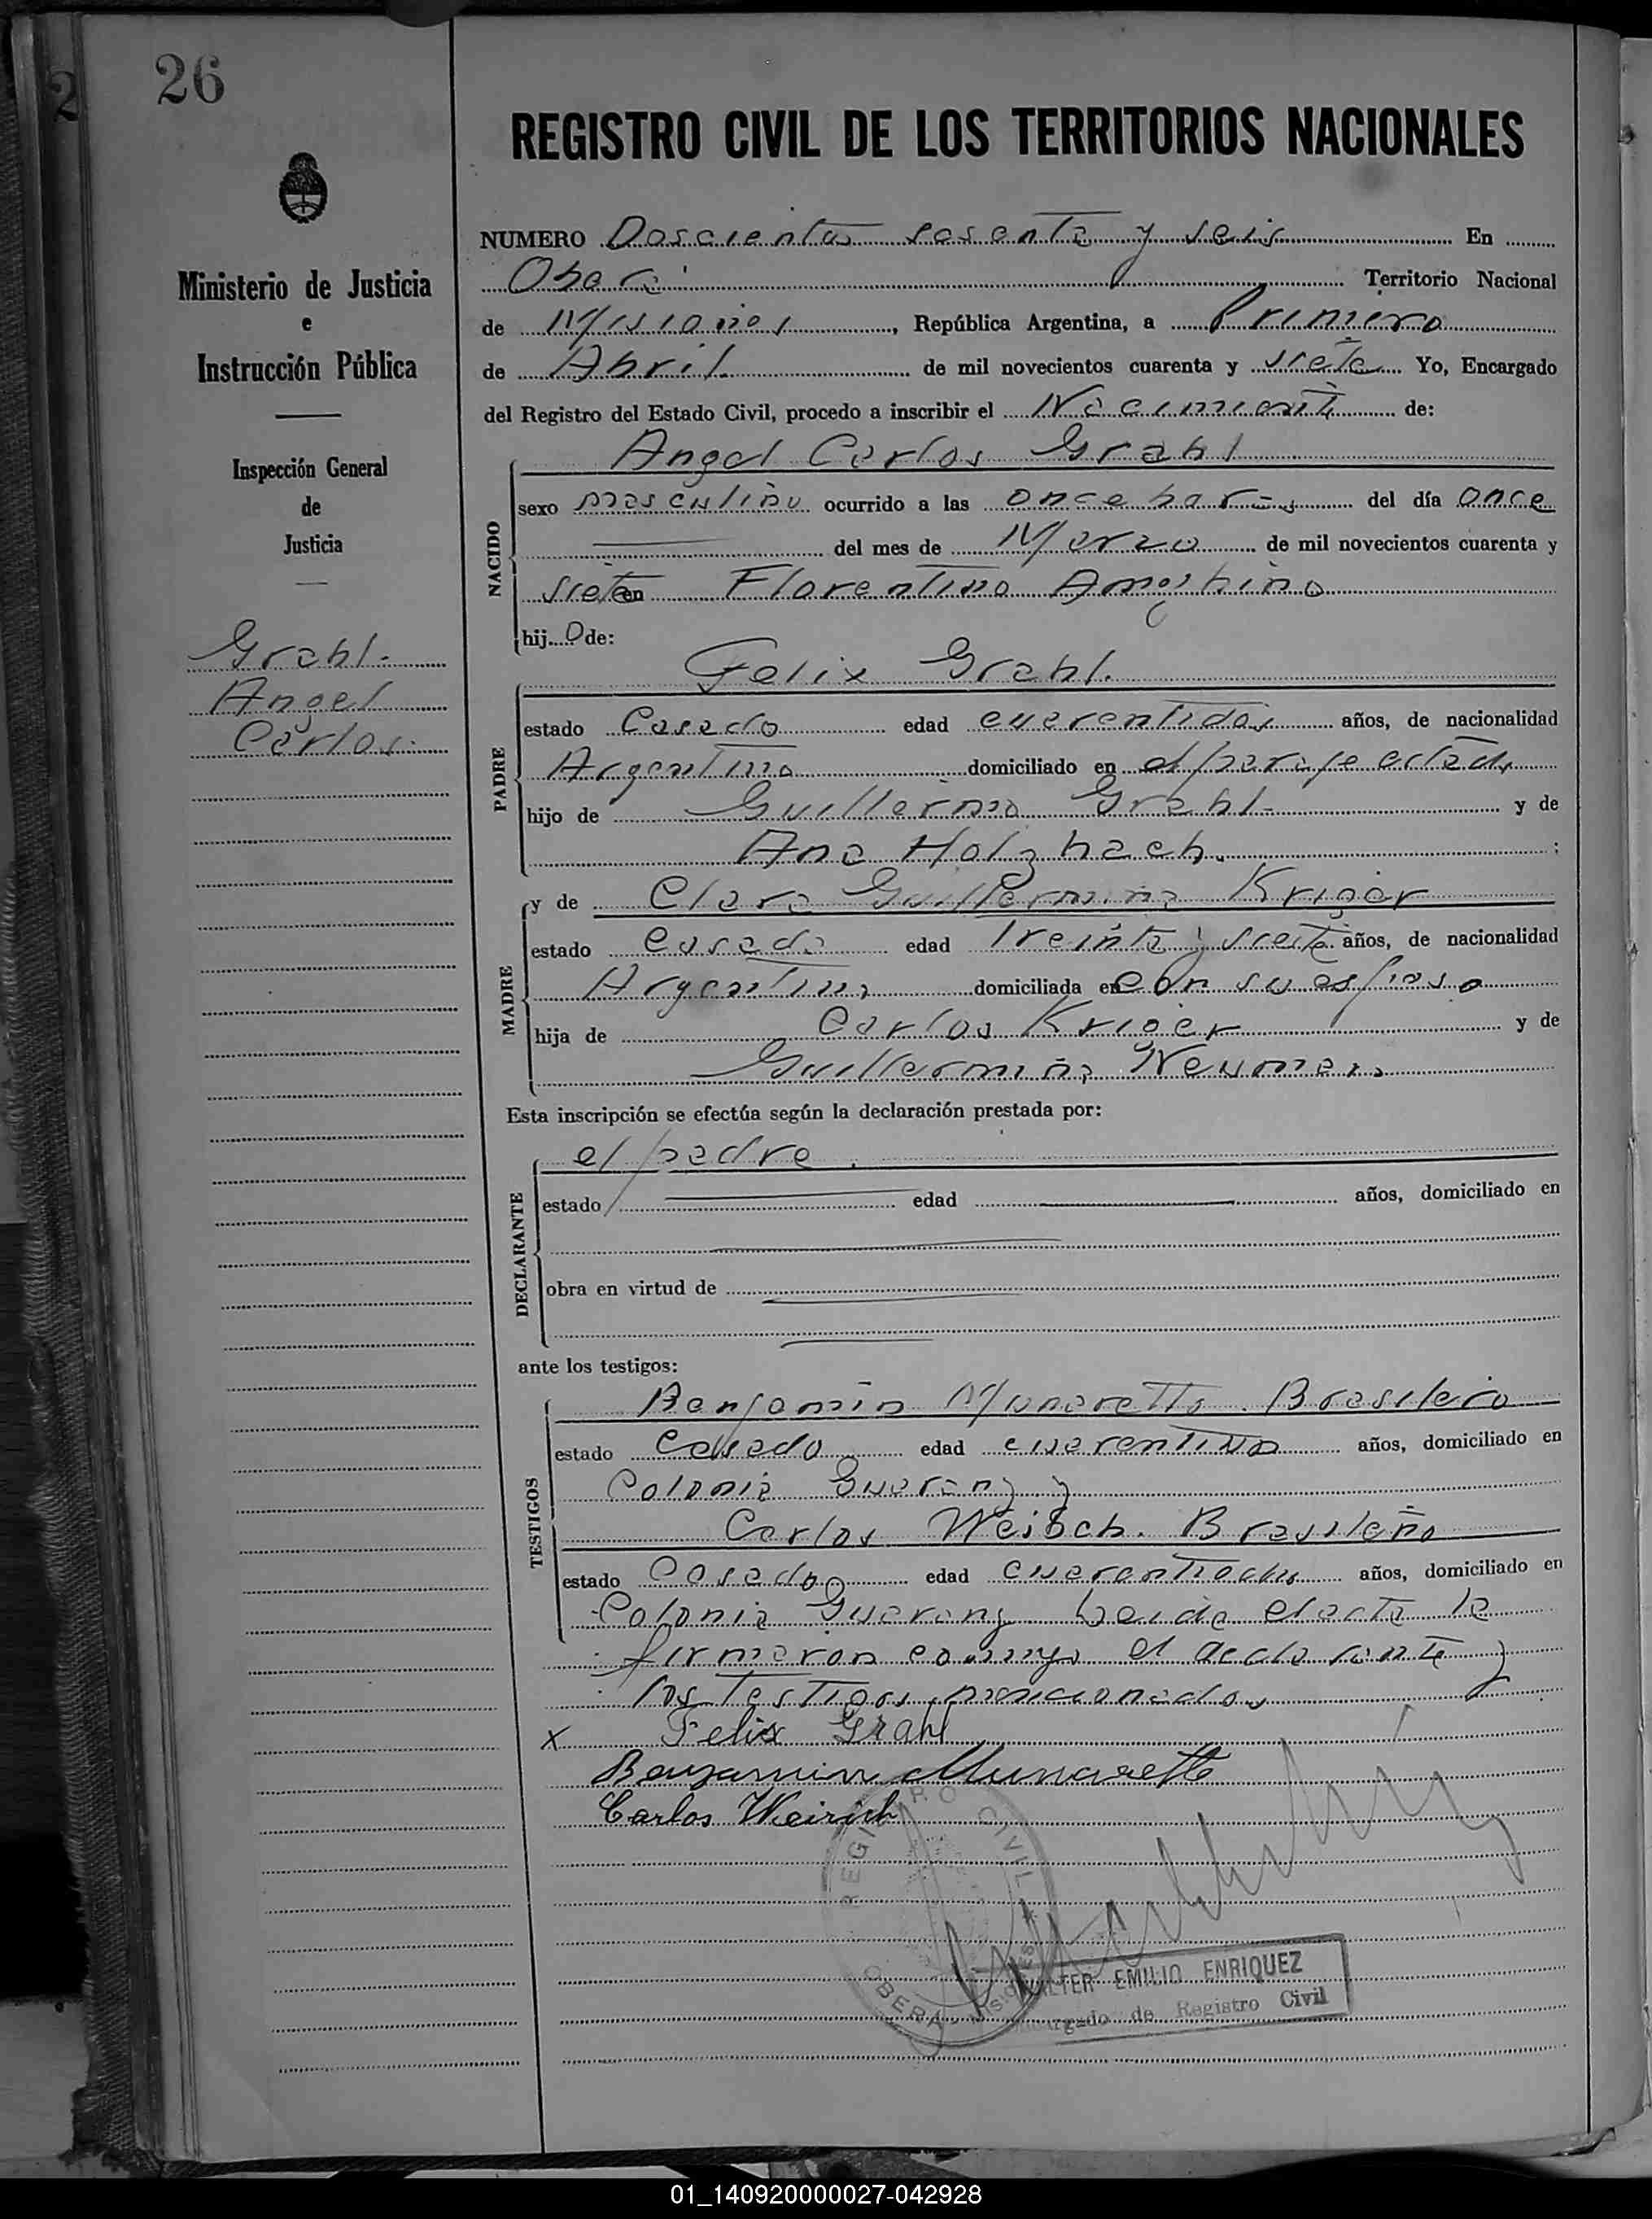 26
REGISTRO CIVIL DE LOS TERRITORIOS NACIONALES
Ministerio de Justicia
e
Instrucción Pública
Inspección General
de
Justicia
Grahl.
Angel
Carlos.
NUMERO Doscientos sesenta y seis En
Oberá Territorio Nacional
de Misiones, República Argentina, a Primero
de Abril de mil novecientos cuarenta y siete Yo, Encargado
del Registro del Estado Civil, procedo a inscribir el Nacimiento de:
Angel Carlos Grahl
NACIDO
sexo masculino ocurrido a las once horas del día once
del mes de Marzo de mil novecientos cuarenta y
siete en Florentino Ameghino
hij o de:
Felix Grahl.
PADRE
estado Casado edad cuarentidos años, de nacionalidad
Argentino domiciliado en el paraje citado
hijo de Guillermo Grahl y de
Ana Holzbach. ;
MADRE
y de Clara Guillermina Kriger
estado Casada edad treinta y siete años, de nacionalidad
Argentina domiciliada en con su esposo
hija de Carlos Kriger y de
Guillermina Neuman
Esta inscripción se efectúa según la declaración prestada por:
el padre.
DECLARANTE
estado edad años, domiciliado en
obra en virtud de
ante los testigos:
TESTIGOS
Benjamin Munaretto. Brasilero
estado Casado edad años, domiciliado en
Colonia Guarany y
Carlos Brasileño
estado Casado edad cuarentiocho años, domiciliado en
Colonia Guarany Leida el acta la
firmaron conmigo el declarante y
los testigos mencionados
x Felix Grahl
Benjamin Munaretto
Carlos Weirich
REGISTRO CIVIL
OBERA MISIONES
WALTER EMILIO ENRIQUEZ
Encargado de Registro Civil
01_140920000027-042928